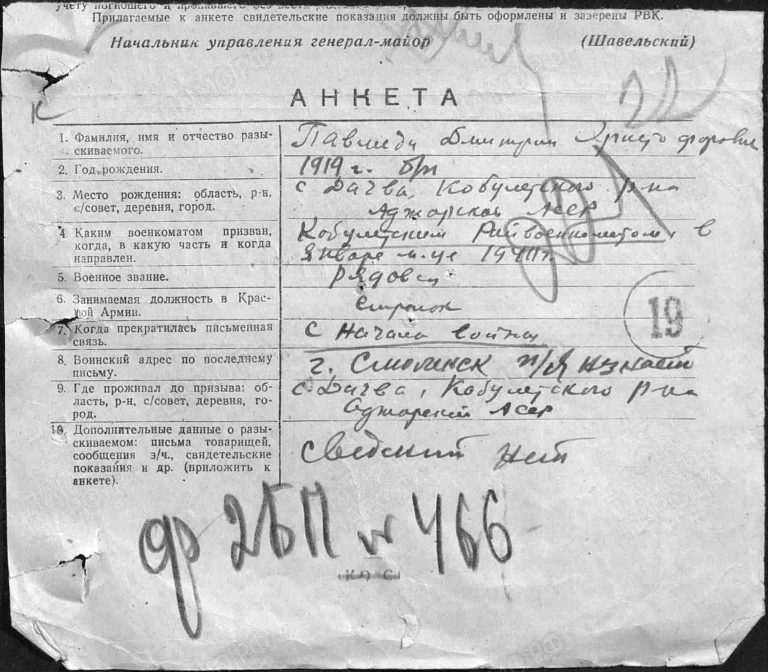 учету погибшего и пропавшего без вести
Прилагаемые к анкете свидетельские показания должны быть оформлены и заверены РВК.
Начальник управления генерал-майор (Шавельский)
АНКЕТА
1. Фамилия, имя и отчество разы-
скиваемого.
Павлиди Дмитрий Христофорович
2. Год рождения.
1919 г.
3. Место рождения: область, р-н,
с/совет, деревня, город.
с Дагва, Кобулетского р-на
Аджарской Асср
4. Каким военкоматом призван,
когда, в какую часть и когда
направлен.
Кобулетским Райвоенкоматом, в
Январе м-це 1940 г.
5. Военное звание.
рядовой
6. Занимаемая должность в Крас-
ной Армии.
стрелок
7. Когда прекратилась письменная
связь.
с начала войны
8. Воинский адрес по последнему
письму.
г. Смоленск п/я
9. Где проживал до призыва: об-
ласть, р-н, с/совет, деревня, го-
род.
с Дагва, Кобулетского р-на
Аджарской Асср
10. Дополнительные данные о разы-
скиваемом: письма товарищей,
сообщения э/ч., свидетельские
показания и др. (приложить к
анкете).
сведений нет
19
466